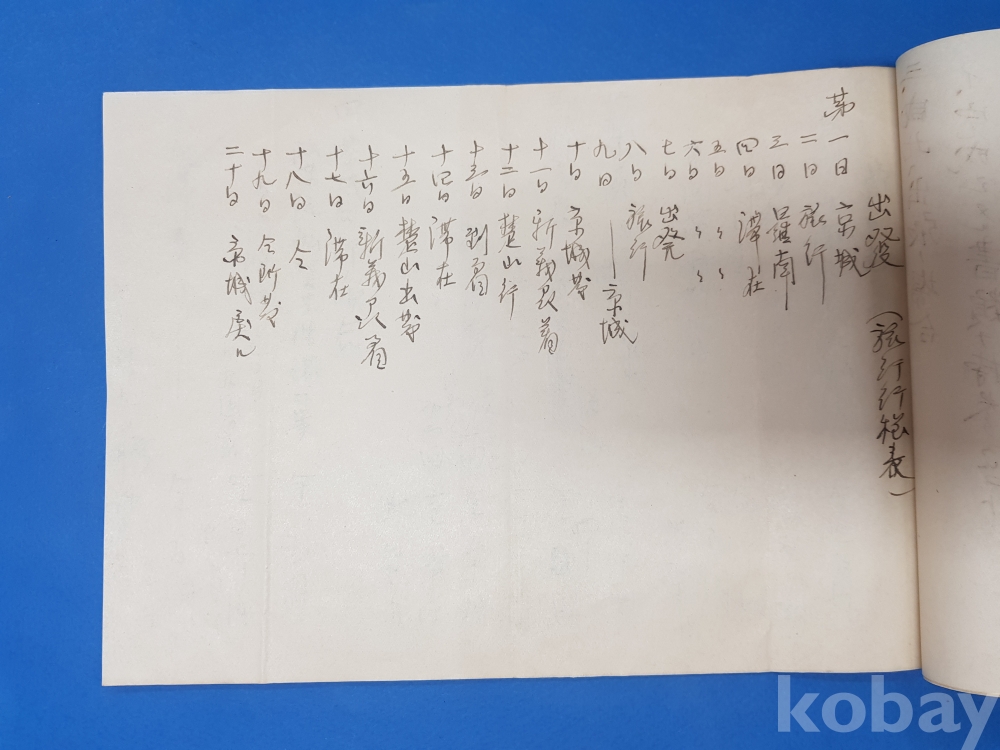 出發 (旅行行程表)
第一日 京城
二日 旅行
三日 羅南
四日 滞在
五日 〃 〃
六日 〃 〃
七日 出発
八日 旅行
九日 ― 京城
十日 京城発
十一日 新義州着
十二日 楚山行
十三日 到着
十四日 滞在
十五日 楚山出発
十六日 新義州着
十七日 滞在
十八日 仝
十九日 仝所発
二十日 京城戻ル
kobay